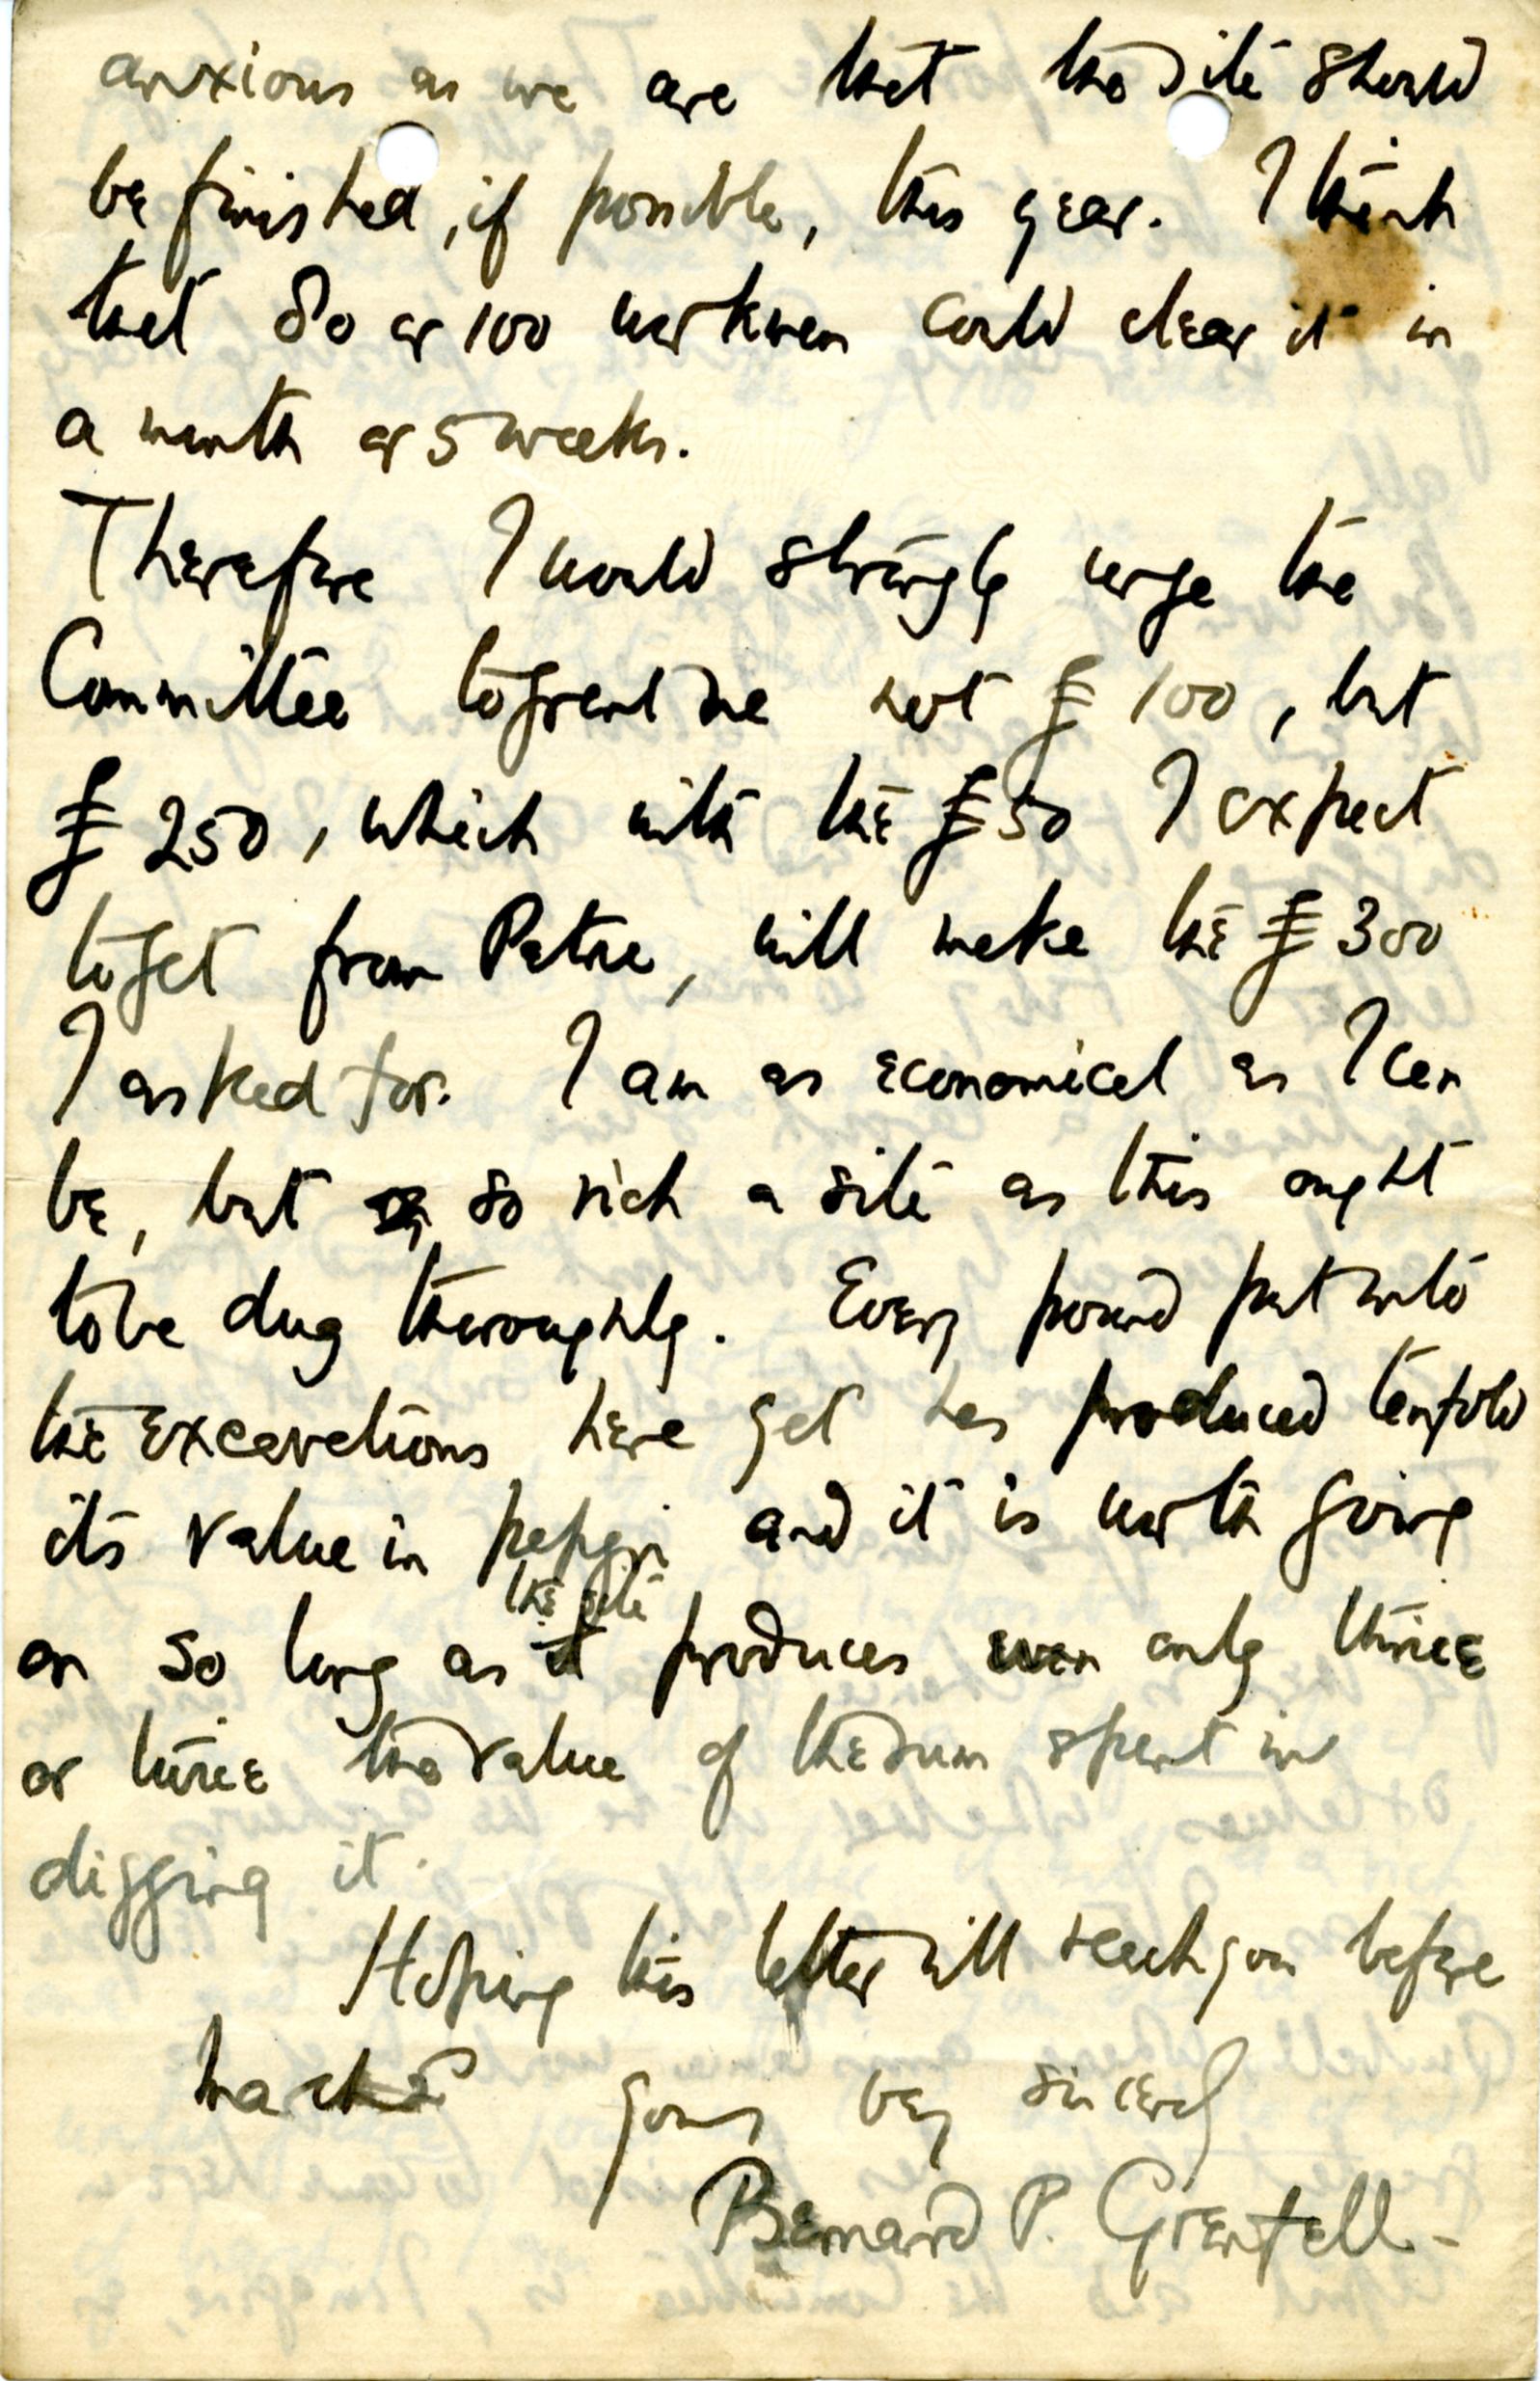 anxious as we are that the site should
be finished, if possible, this year. I think
that 80 or 100 workmen could clear it in
a month or 5 weeks.
Therefore I would strongly urge the
Committee to grant me not £100, but
£250, which with the £50 I expect
to get from Petrie, will make the £300
I asked for. I am as economical as I can
be, but so rich a site as this ought
to be dug thoroughly. Every pound put into
the excavations here yet has produced tenfold
its value in papyri and it is worth going
the site
on so long as it produces even only thrice
or twice the value of the sum spent in
digging it.
Hoping this letter will reach you before
yours very sincerely
Bernard P. Grenfell-